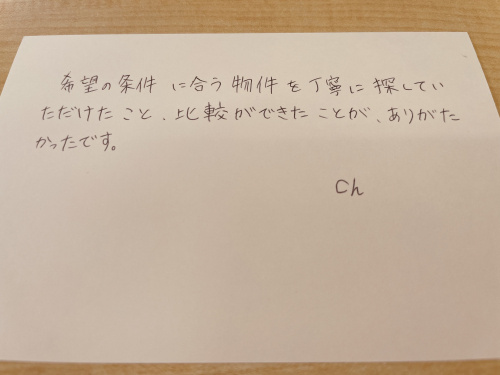 希望の条件に合う物件を丁寧に探してい
ただけたこと、比較ができたことが、ありがた
かったです。
Ch